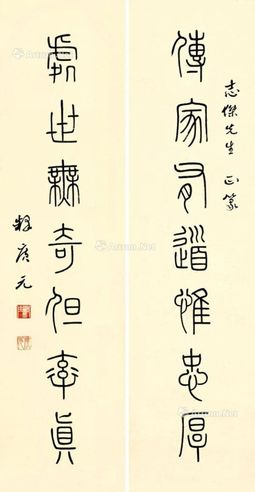 志傑先生 正篆
傳家有道惟忠厚
處世無奇但率真
釋廣元